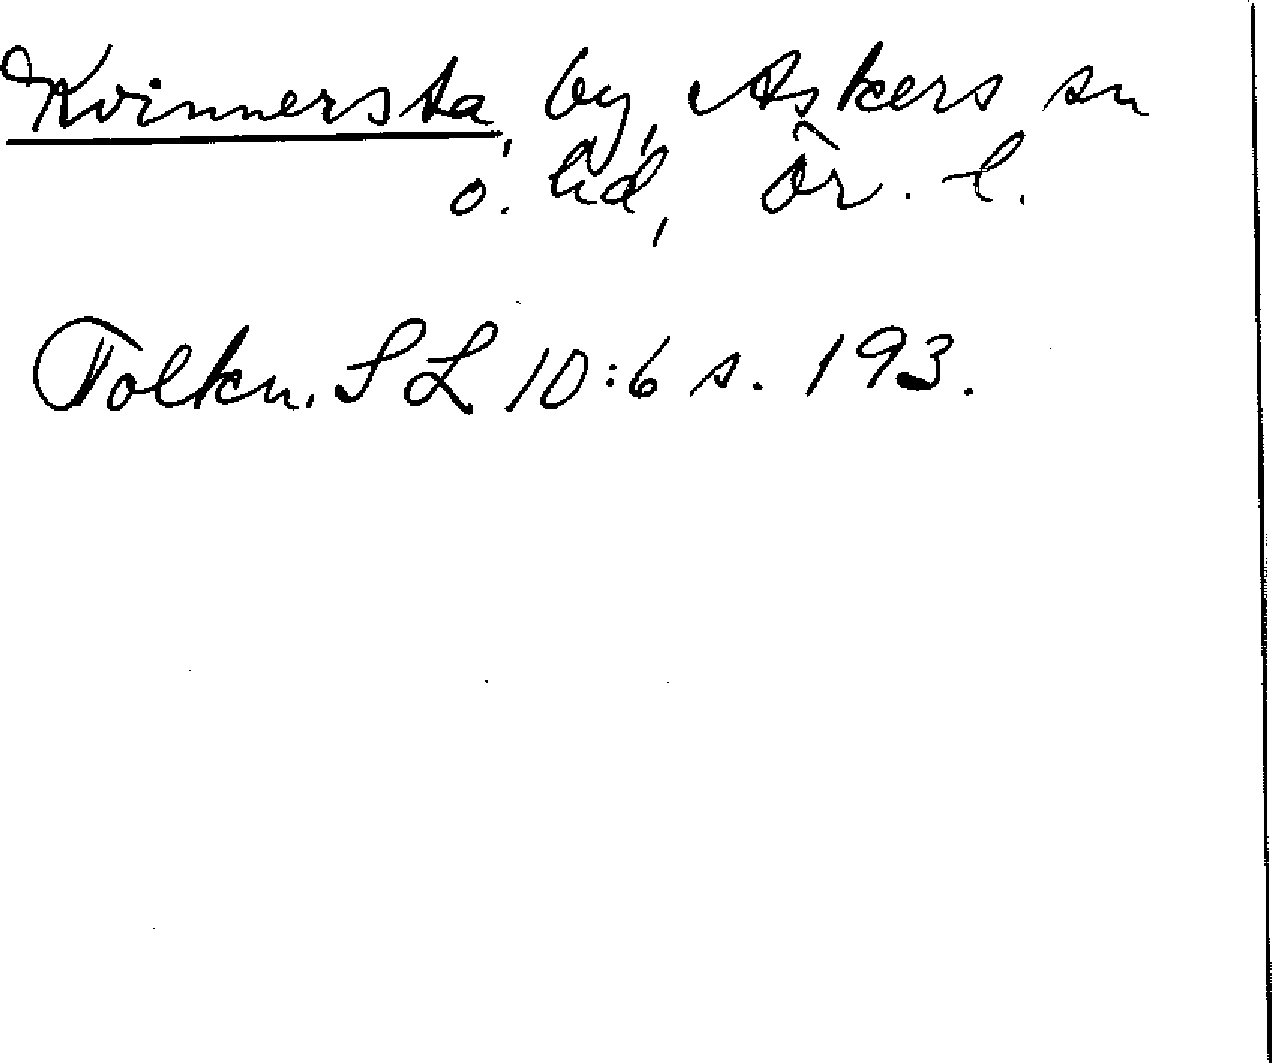 Kvinnersta, by, Askers sn
o. hd, Ör. l.
Tolkn. SL 10:6 s. 193.